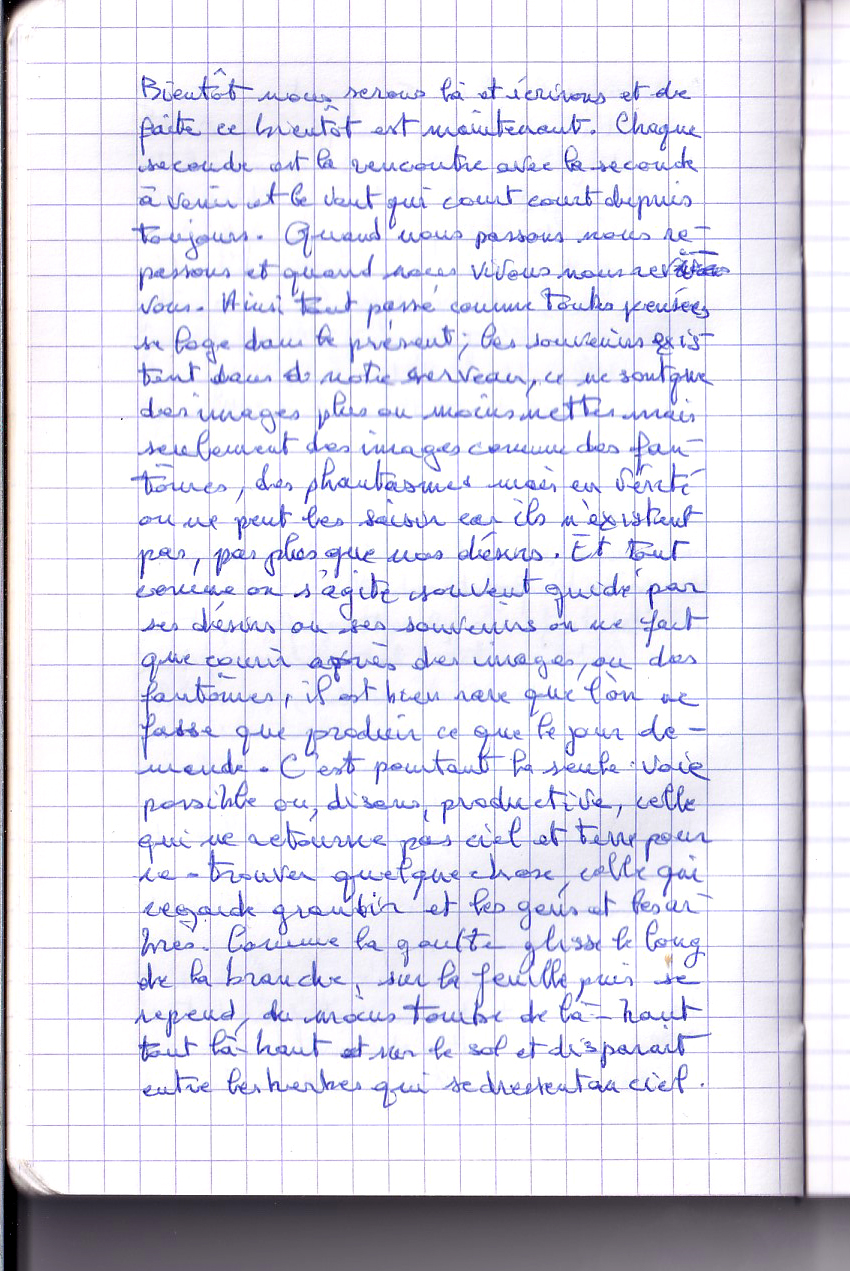 Bientôt nous serons là et écrirons et de
faite ce bientôt est maintenant. Chaque
seconde est la rencontre avec la seconde
à venir et le vent qui court court depuis
toujours. Quand nous passons nous re-
passons et quand nous vivons nous re
vons. Ainsi tout passé comme toutes pensées
se loge dans le présent ; les souvenirs exis-
tent dans notre cerveau, ce ne sont que
des images plus ou moins nettes mais
seulement des images comme des fan-
tômes, des phantasmes mais en vérité
on ne peut les saisir car ils n'existent
pas, pas plus que nos désirs. Et tout
comme on s'agite souvent guidé par
ses désirs ou ses souvenirs on ne fait
que courir après des images, ou des
fantômes, il est bien rare que l'on ne
fasse que produir ce que le jour de-
mande. C'est pourtant la seule voie
possible ou, disons, productive, celle
qui ne retourne pas ciel et terre pour
re-trouver quelque chose, celle qui
regarde grandir et les gens et les ar-
bres. Comme la goutte glisse le long
de la branche, sur la feuille puis se
repend, du moins tombe de là-haut
tout là-haut et sur le sol et disparait
entre les herbes qui se dressent au ciel.